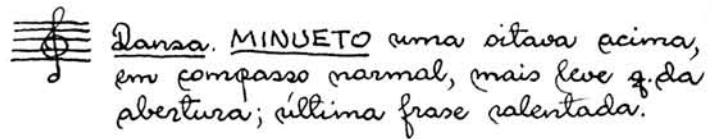 Dansa. MINUETO uma oitava acima,
em compasso normal, mais leve q. da
abertura; última frase ralentada.